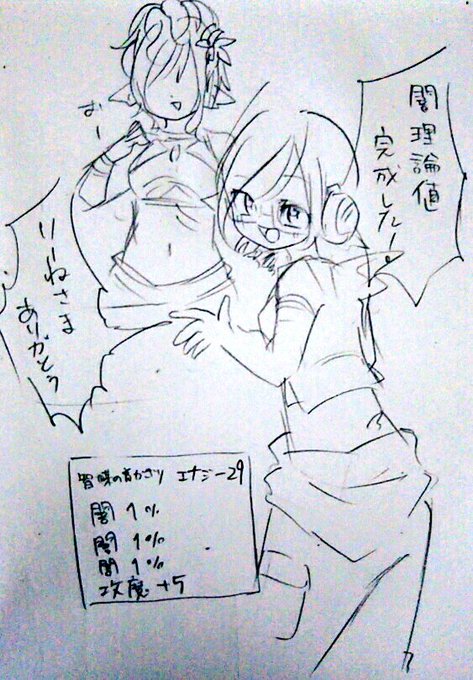 闇理論値
完成したー。
おー
りーねさま
ありがとう
智略の首かざり エナジー29
闇 1%
闇 1%
闇 1%
攻魔 +5